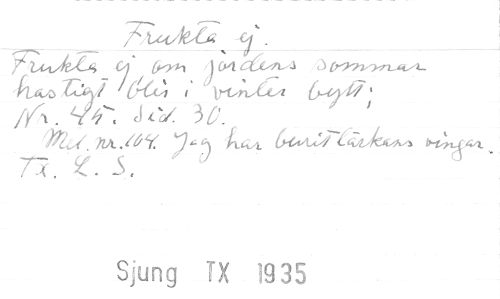 Frukta ej.
Frukta ej om jordens sommar
hastigt blir i vinter bytt;
Nr. 45. Sid. 30.
Mel. nr. 104. Jag har burit lärkans vingar.
Tx. L. S.
Sjung TX 1935